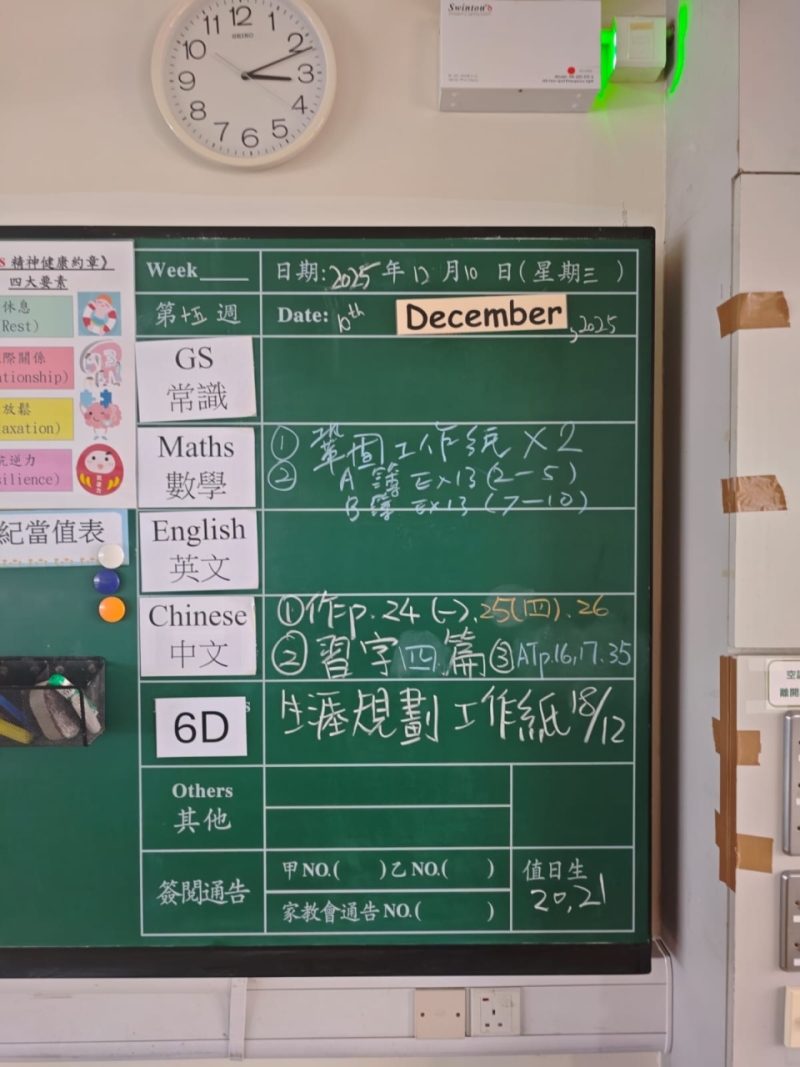 12
1
2
3
4
5
6
7
8
9
10
11
SEIKO
Swinton's
精神健康約章》
四大要素
休息
Rest)
際關係
ationship)
放鬆
axation)
逆力
silience)
紀當值表
Week____
日期:2025年12月10日(星期三)
第十五週
Date: 10th December, 2025
GS
常識
Maths
數學
① 鞏固工作紙×2
② A簿 Ex13(2-5)
B簿 Ex13(7-10)
English
英文
Chinese
中文
①作p.24(一),25(四).26
②習字四篇③ATp.16,17.35
6D
生涯規劃工作紙18/12
Others
其他
簽閱通告
甲NO.( )乙NO.( )
家教會通告NO.( )
值日生
20,21